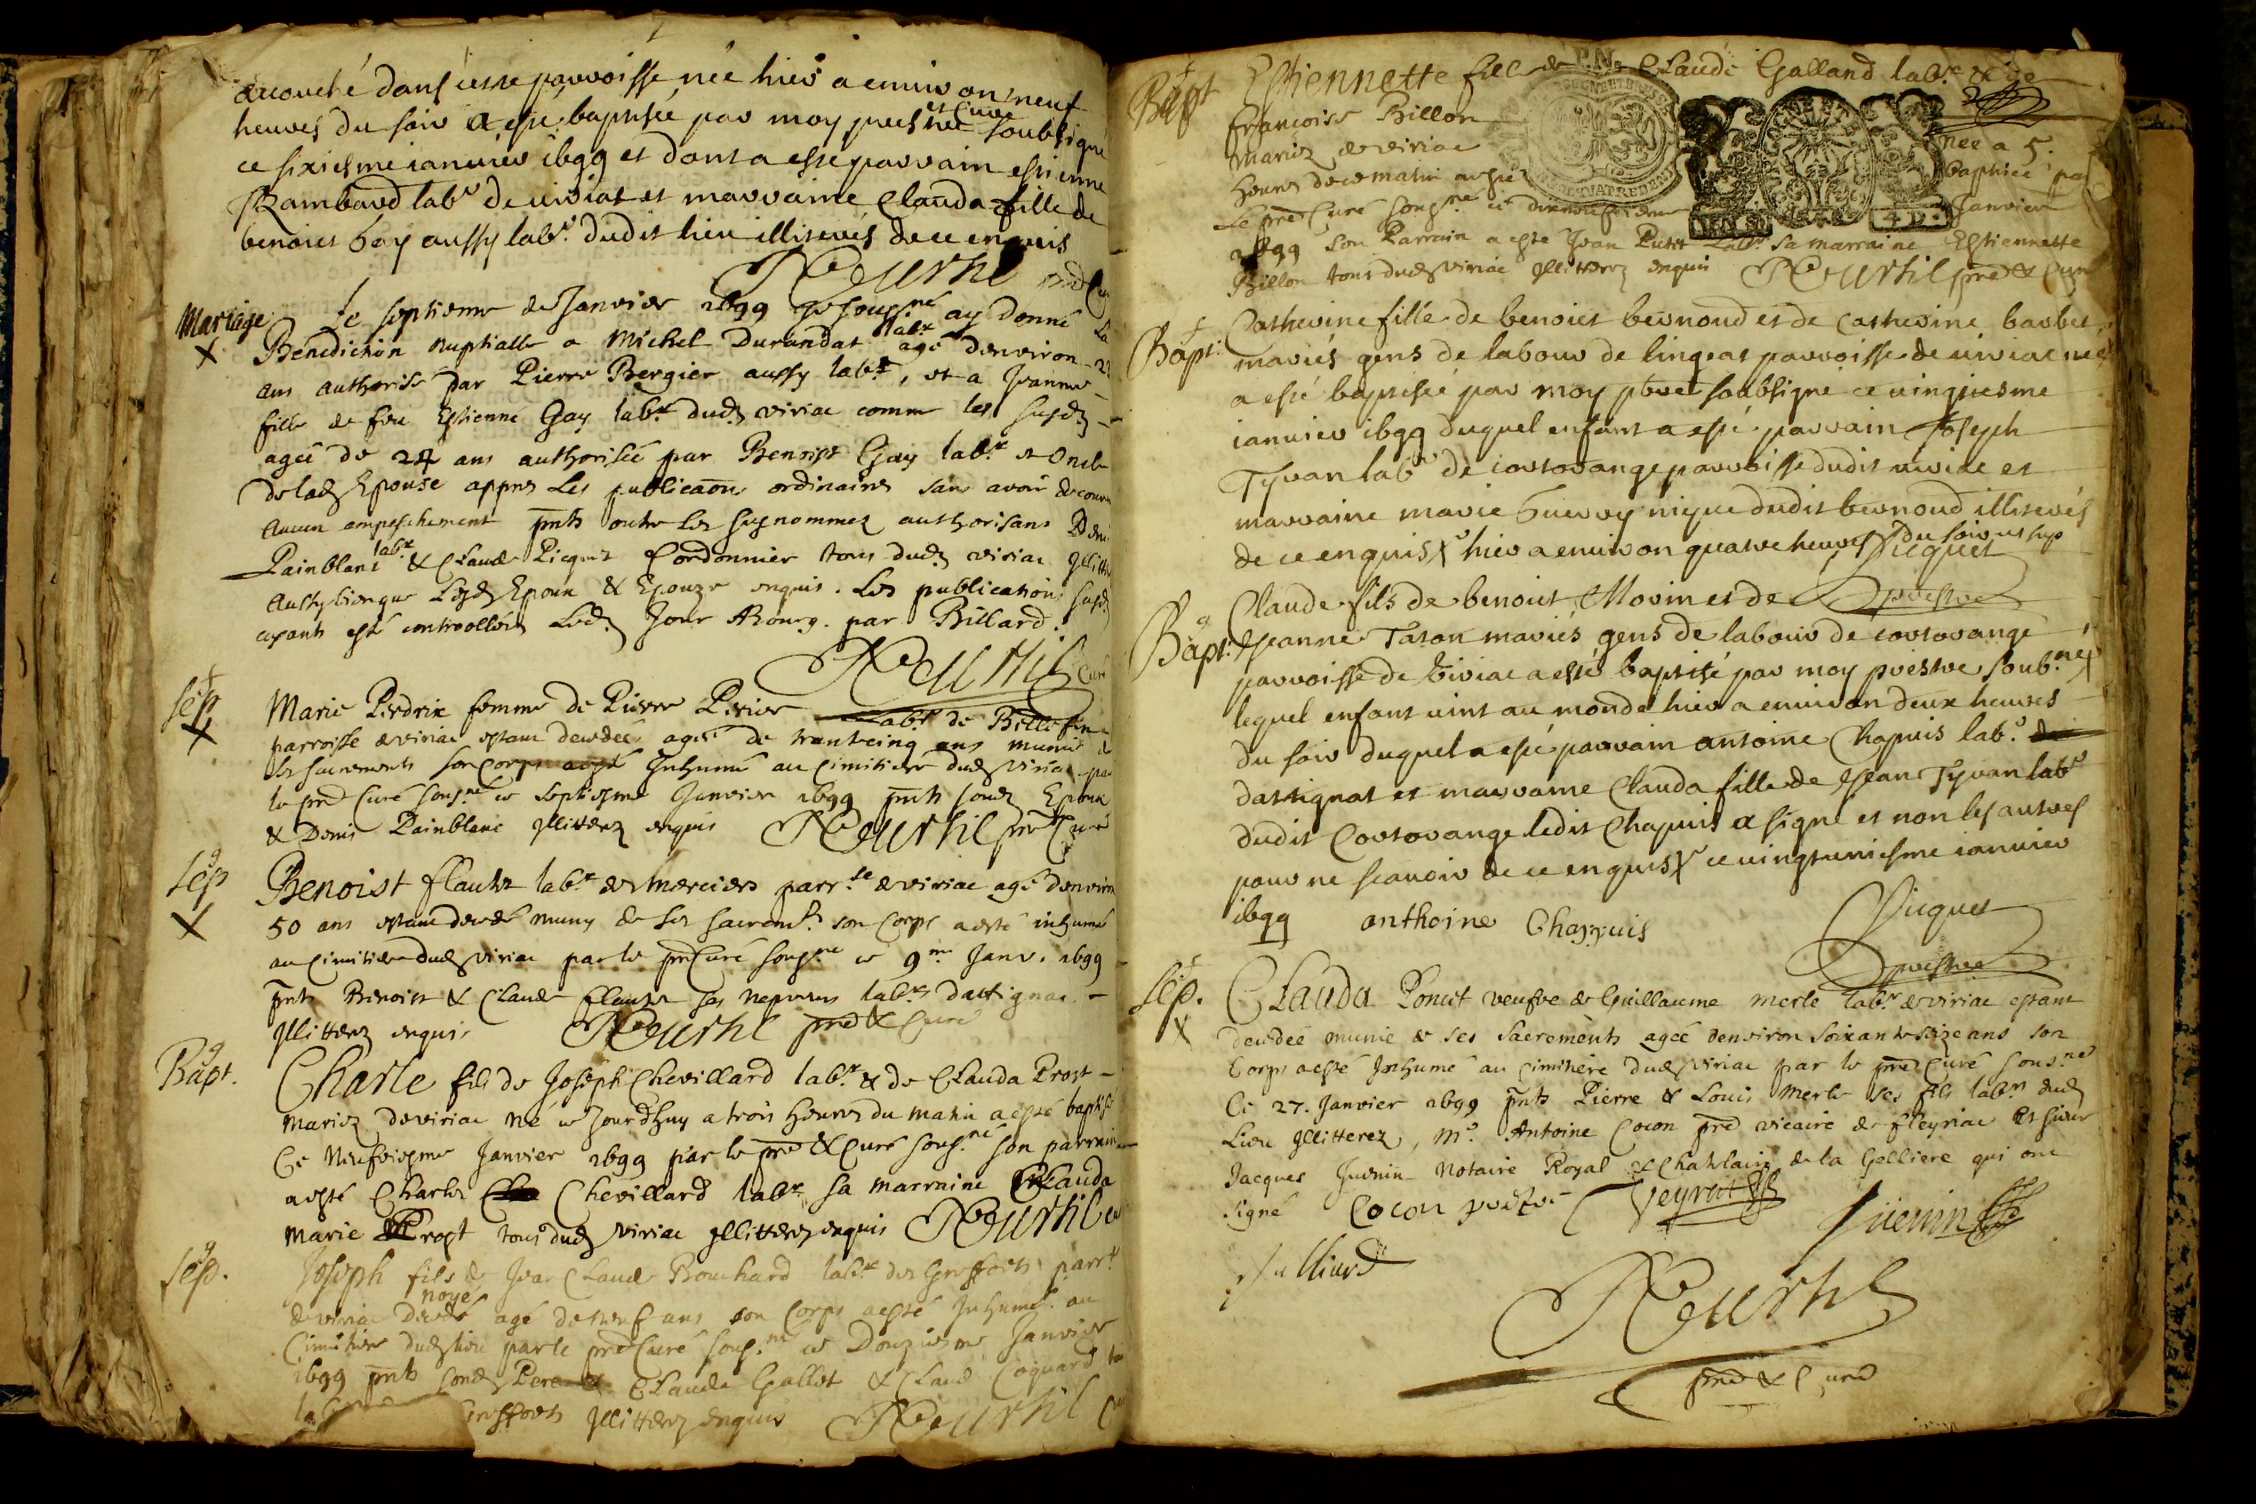 accouché dans cette parroisse née hier a environ neuf
heures du soir a esté baptisée par moy prestre et curé soubsigné
ce sixiesme ianvier 1699 et dont a esté parrain estienne
Rambaud labr de viriat et marraine Clauda fille de
benoict bay aussy labr. dudit lieu illiterés de ce enquis
Reurhil
Mariage
Le septieme de Janvier 1699 Je sousné ay donné La
Benediction nuptialle a Michel Durandat labr agé denviron 22
ans authorisé par Pierre Bergier aussy labr, et a Jeanne
fille de feu Estienne Gay labr dud viriac comme les susd
agée de 24 ans authorisée par Benoist Gay labr et Oncle
de lad Epouse appres Les publicaons ordinaires sans avoir decouvert
Aucun empeschement pnts outre Les susnommez authorisans Denis
Painblanc labr & Claude Picquet Cordonnier tous dud viriac Illiter
Aussy bienque Lesd Epoux & Epouze enquis. Les publications susd
ayants esté controollées Led Jour ABourg. par Billard.
Reurhil Curé
Sep
Marie Perdrix femme de Pierre Perier Labr de Bellefin
parroisse de viriac estant decedée agée de trante cinq ans munie de
ses sacrements son Corps a esté Inhumé au Cimitiere dud viriac par
le pre Curé sousné ce septiesme Janvier 1699 pnts sond Epoux
& Denis Painblanc Illiterez enquis Reurhil pre Curé
Sep
Benoist flauder labr des Merciers parrse de viriac agé denviron
50 ans estant decedé muny de ses sacremts son Corps a esté inhumé
au Cimitiere dud viriac par le pre Curé sousné ce 9me Janv. 1699
pnts Benoist & Claude flauder ses nepveus labrs dattignac
Illiterez enquis Reurhil pre & Curé
Bapt.
Charle fils de Joseph Chevillard labr & de Clauda Prost
mariez de viriac né ce Jourdhuy a trois heures du matin a esté baptisé
Ce Neufviesme Janvier 1699 par le pre & Curé sousné son parrain
a esté Charle Chevillard labr sa marraine Clauda
Marie Prost tous dud viriac Illiterez enquis Reurhil Cu
Sep.
Joseph fils de Jean Claude Bouchard labr des Greffets parrse
de viriac decedé noyé agé de neuf ans son Corps a esté Inhumé au
Cimitiere dud lieu par le pre Curé sousné ce Douziesme Janvier
1699 pnts sond Pere Claude Gallet & Claude Coquard
Greffets Illiterez enquis Reurhil
Bapt
Estiennette fille de Claude Galland labr & de
francoise Billon
Mariez de viriac née a 5.
heures de ce matin a esté baptisée par
Le pre Curé sousné ce Janvier
1699 Son Parrain a esté Jean Putet labr Sa marraine Estiennette
Billon tous dud viriac Illiterez enquis Reurhil pre & Curé
Bapt:
Catherine fille de benoict bernoud et de Catherine barbet
mariés gens de labour de lingeat parroisse de viriac née
a esté baptisée par moy pbre soubsigné ce vingtiesme
ianvier 1699 duquel enfant a esté parrain Joseph
Tyvan labr de cortorange parroisse dudit viriac et
marraine marie Guerry niepce dudit bernoud illiterés
de ce enquis hier a environ quatre heures du soir ut sup
Picquet
prestre
Bapt:
Claude fils de benoict Morin et de
Jeanne Taton mariés gens de labour de cortorange
parroisse de viriac a esté baptisé par moy prestre soubné
lequel enfant vint au monde hier a environ deux heures
du soir duquel a esté parrain antoine Chapuis labr.
dattignat et marraine Clauda fille de Jean Tyvan labr
dudit Cortorange ledit Chapuis a signé et non les autres
pour ne scavoir de ce enquis ce vingtuniesme ianvier
1699 anthoine Chappuis Picquet
prestre
Sep.
Clauda Poncet veufve de Guillaume Merle labr de viriac estant
decedée munie de ses sacrements agée denviron soixante seize ans son
Corps a esté Inhumé au Cimitiere dud viriac par le pre Curé sousné
Ce 27. Janvier 1699 pnts Pierre & Louis Merle ses fils labrs dud
Lieu Illiterez, Me. Antoine Cocon pre vicaire de fleyriac Et sieur
Jacques Juenin Notaire Royal & Chatelain de la Gelliere qui ont
signé Cocon prestre Peyret Juenin
Julliard
Reurhil
pre & Curé